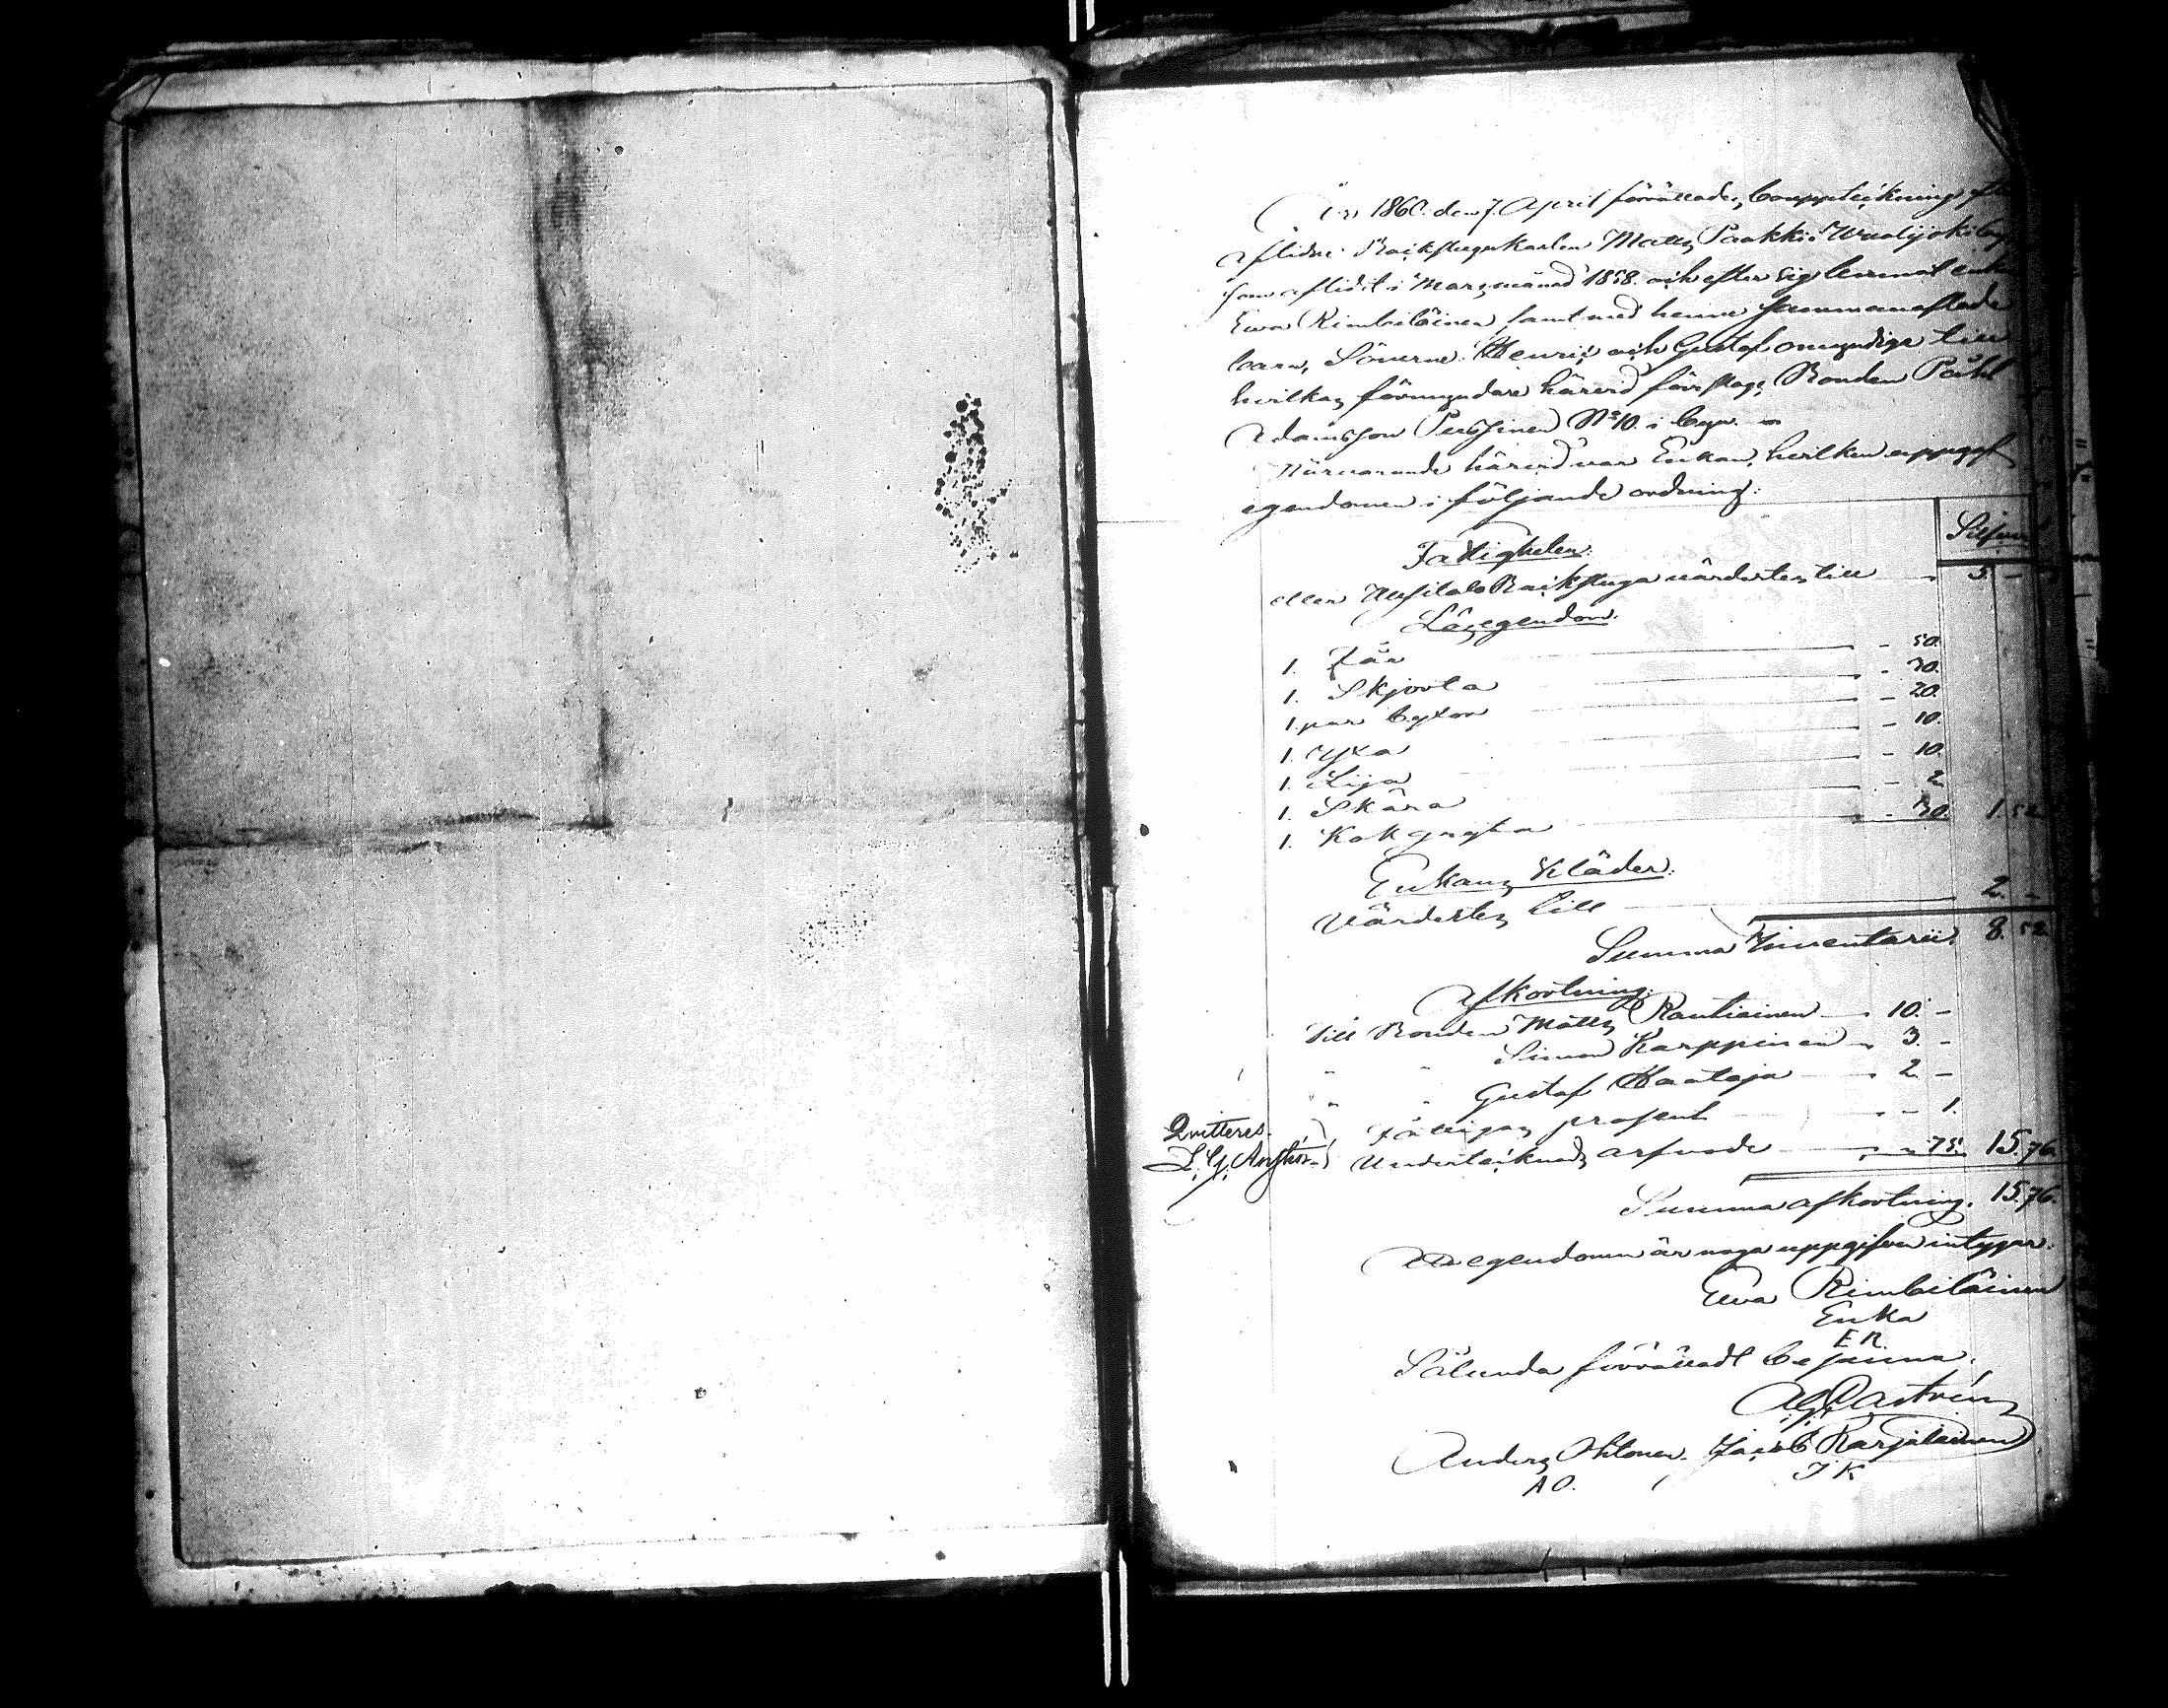 År 1860. den 7. April förrättades bouppteckning efter
aflidne Backstugukarlen Matts Paakki i Wuolijoki by
som aflidit i Marsmånad 1858. och efter sig lemnat enkan
Ewa Rimbiläinen samt med henne sammanaflade
barn, Sönerne Henric och Gustaf omyndige till
hvilkas förmyndare härvid föreslogs Bonden Påhl
Adamsson Pussinen No 10. i byn.
Närvarande härvid var Enkan, hvilken uppgaf
egendomen i följande ordning:
Silfver
Fastigheten.
eller Backstuga värdertes till 5. -
Lösegendom.
1. Får - 50.
1. Skjorta - 30.
1. par byxor - 20.
1. Yxa - 10.
1. Lija - 10.
1. Skära - 2
1. Kokgryta - 30. 1.52
Enkans Kläder.
Värdertes till 2. -
Summa Inventarii. 8.52
Afkortning.
Till Bonden Matts Rautiainen 10. -
" " Simon Karppinen 3. -
" " Gustaf Haataja 2 -
Qvitteras. Fattigas procent - 1.
Undertecknads arfvode - 75. 15.76.
Summa afkortning. 15.76.
Att egendomen är noga uppgifven intygar.
Ewa Rimbiläinen
Enka
E R.
Sålunda förrättadt betjenna.
Castrén
Anders Ohtonen. Jacob Karjalainen
A O. J K